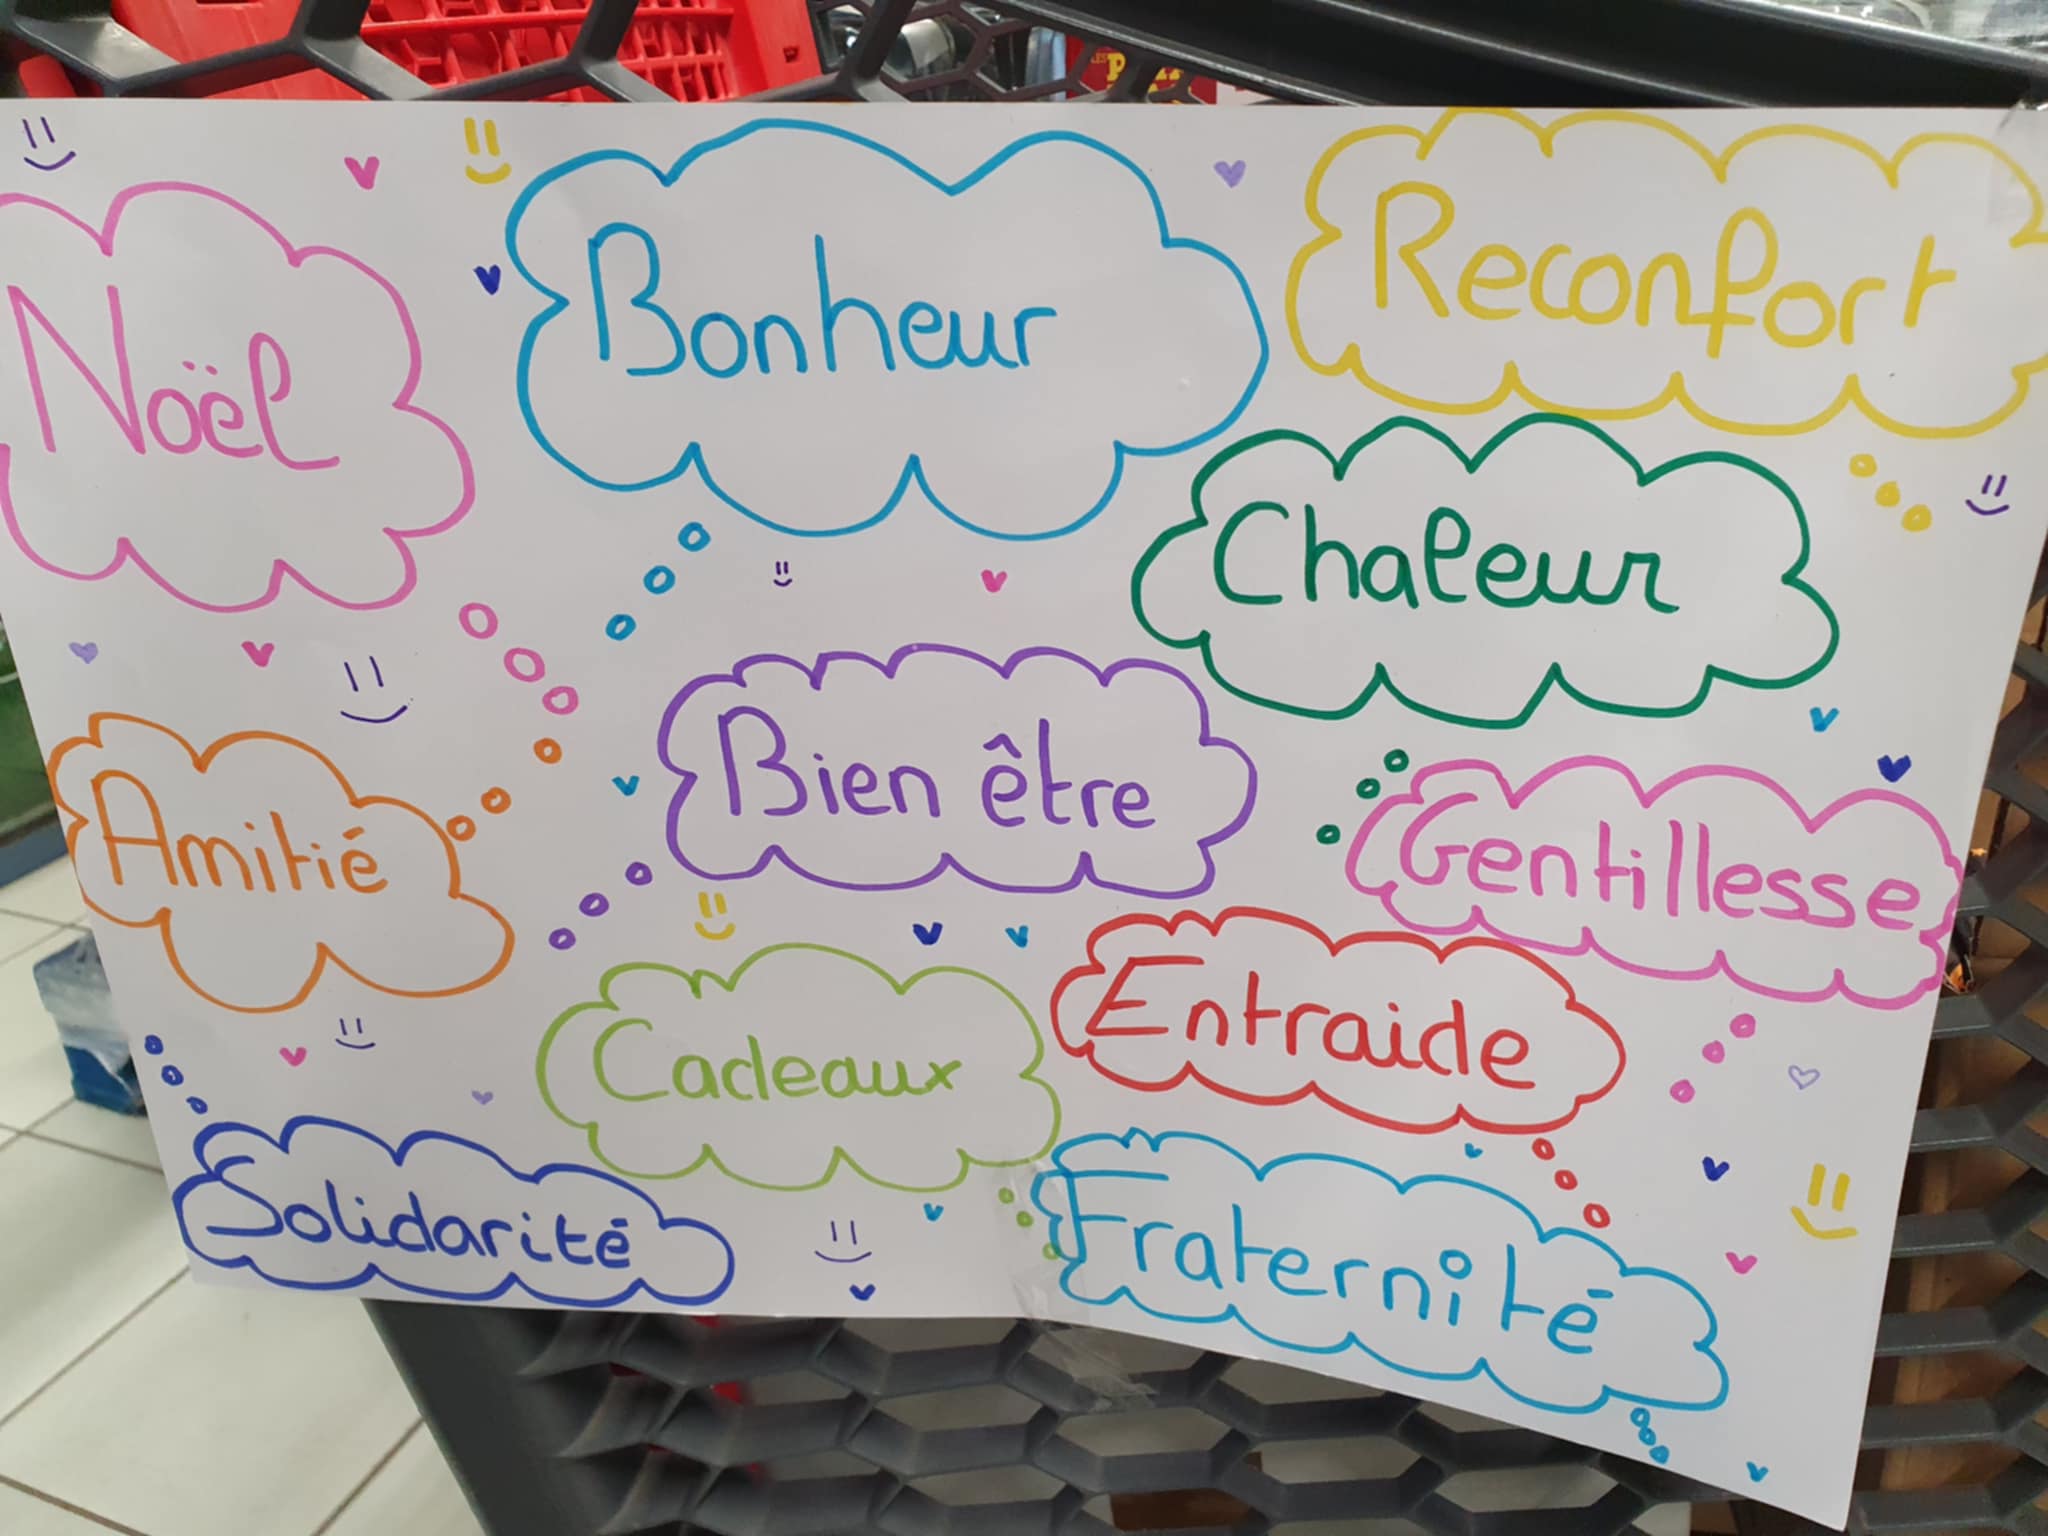 Noël
Bonheur
Reconfort
Chaleur
Bien être
Amitié
Gentillesse
Entraide
Cadeaux
Solidarité
Fraternité